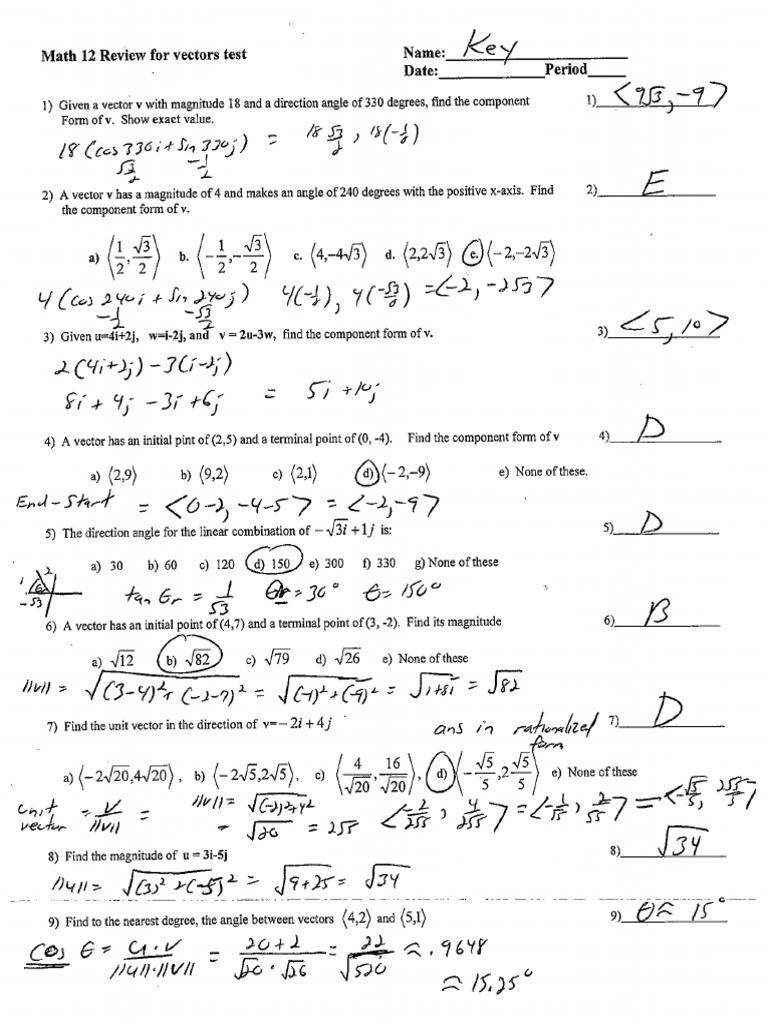 Math 12 Review for vectors test
Name: Key
Date:____________Period_____
1) Given a vector v with magnitude 18 and a direction angle of 330 degrees, find the component
Form of v. Show exact value.
1) ⟨9√3, -9⟩
18 (cos 330i + sin 330j) = 18 √3/2 , 18(-1/2)
√3/2 -1/2
2) A vector v has a magnitude of 4 and makes an angle of 240 degrees with the positive x-axis. Find
the component form of v.
2) E
a) ⟨1/2, √3/2⟩ b. ⟨-1/2, -√3/2⟩ c. ⟨4,-4√3⟩ d. ⟨2,2√3⟩ e. ⟨-2,-2√3⟩
4 (cos 240i + sin 240j) 4(-1/2), 4(-√3/2) = ⟨-2, -2√3⟩
-1/2 -√3/2
3) Given u=4i+2j, w=i-2j, and v = 2u-3w, find the component form of v.
3) ⟨5, 10⟩
2(4i+2j) - 3(i-2j)
8i + 4j - 3i + 6j = 5i + 10j
4) A vector has an initial pint of (2,5) and a terminal point of (0, -4). Find the component form of v
4) D
a) ⟨2,9⟩ b) ⟨9,2⟩ c) ⟨2,1⟩ d) ⟨-2,-9⟩ e) None of these.
End-Start = ⟨0-2, -4-5⟩ = ⟨-2, -9⟩
5) The direction angle for the linear combination of -√3i +1j is:
5) D
a) 30 b) 60 c) 120 d) 150 e) 300 f) 330 g) None of these
1 2 θr -√3
tan θr = 1/√3 θr = 30° θ = 150°
6) A vector has an initial point of (4,7) and a terminal point of (3, -2). Find its magnitude
6) B
a) √12 b) √82 c) √79 d) √26 e) None of these
||v|| = √(3-4)²+(-2-7)² = √(-1)²+(-9)² = √1+81 = √82
7) Find the unit vector in the direction of v=-2i + 4j
ans in rationalized
form
7) D
a) ⟨-2√20,4√20⟩, b) ⟨-2√5,2√5⟩, c) ⟨4/√20, 16/√20⟩, d) ⟨-√5/5, 2√5/5⟩ e) None of these
unit vector = v/||v|| = ||v|| = √(-2)²+4² ⟨-2/2√5, 4/2√5⟩ = ⟨-1/√5, 2/√5⟩ = ⟨-√5/5, 2√5/5⟩
= √20 = 2√5
8) Find the magnitude of u = 3i-5j
8) √34
||u|| = √(3)²+(-5)² = √9+25 = √34
9) Find to the nearest degree, the angle between vectors ⟨4,2⟩ and ⟨5,1⟩
9) θ ≈ 15°
cos θ = u·v/||u||·||v|| = 20+2/√20·√26 = 22/√520 ≈ .9648
≈ 15.25°